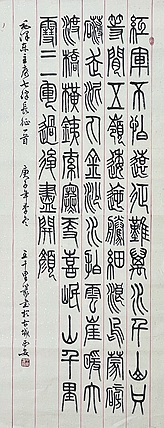 紅軍不怕遠征難萬水千山只
等閒五嶺逶迤騰細浪烏蒙磅
礴走泥丸金沙水拍雲崖暖大
渡橋橫鐵索寒更喜岷山千里
雪三軍過後盡開顏
毛澤東主席七律長征一首 庚子年季冬 書於古城西安